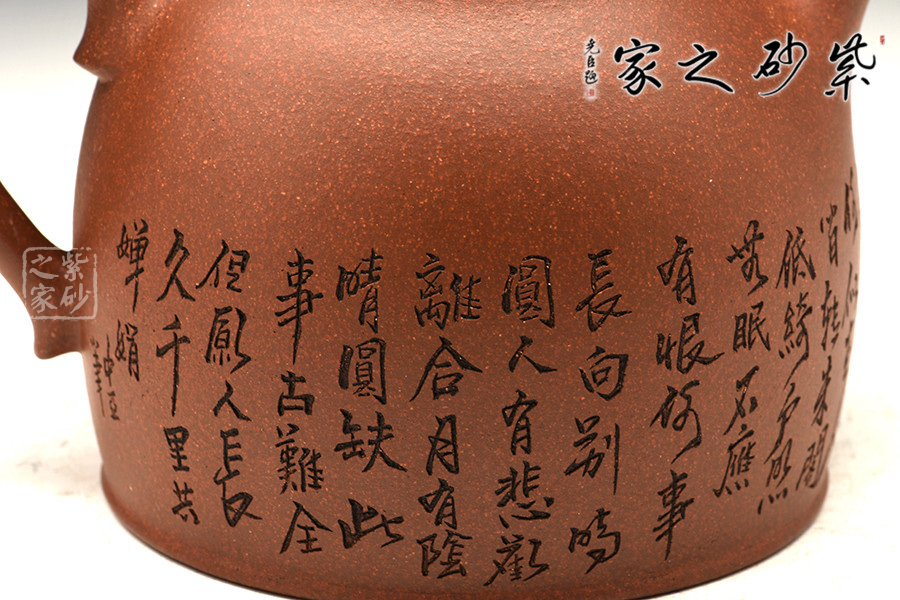 紫砂之家
尧臣題
轉朱閣
低綺戶照
無眠不應
有恨何事
長向别時
圓人有悲歡
離合月有陰
晴圓缺此
事古難全
但願人長
久千里共
嬋娟
紫砂之家